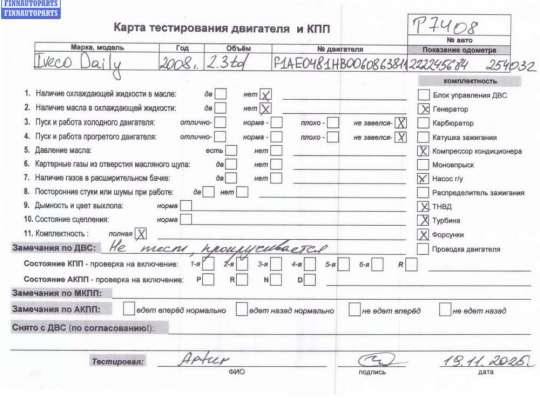 FINNAUTOPARTS
FINNAUTOPARTS
Карта тестирования двигателя и КПП
P7408
№ авто
Марка, модель Год Объём № двигателя Показание одометре
Iveco Daily 2008г. 2.3td F1AE0481HB006086381 254032
комплектность
1. Наличие охлаждающей жидкости в масле: да нет X
2. Наличие масла в охлаждающей жидкости: да нет X
3. Пуск и работа холодного двигателя: отлично- норма - плохо - не завелся- X
4. Пуск и работа прогретого двигателя: отлично- норма - плохо - не завелся- X
5. Давление масла: есть нет
6. Картерные газы из отверстия масляного щупа: да нет
7. Наличие газов в расширительном бачке: да нет
8. Посторонние стуки или шумы при работе: да нет
9. Дымность и цвет выхлопа: норма
10. Состояние сцепления: норма
11. Комплектность : полная X
Блок управления ДВС
X Генератор
Карбюратор
Катушка зажигания
X Компрессор кондиционера
Моновпрыск
X Насос г/у
Распределитель зажигания
X ТНВД
X Турбина
X Форсунки
Проводка двигателя
Замечания по ДВС: Не тест, прокручивается
Состояние КПП - проверка на включение: 1-я 2-я 3-я 4-я 5-я 6-я R
Состояние АКПП - проверка на включение: P R N D
Замечания по МКПП:
Замечания по АКПП: едет вперёд нормально едет назад нормально не едет вперёд не едет назад
Снято с ДВС (по согласованию!):
Тестировал: Artur 19.11.2025г.
ФИО подпись дата